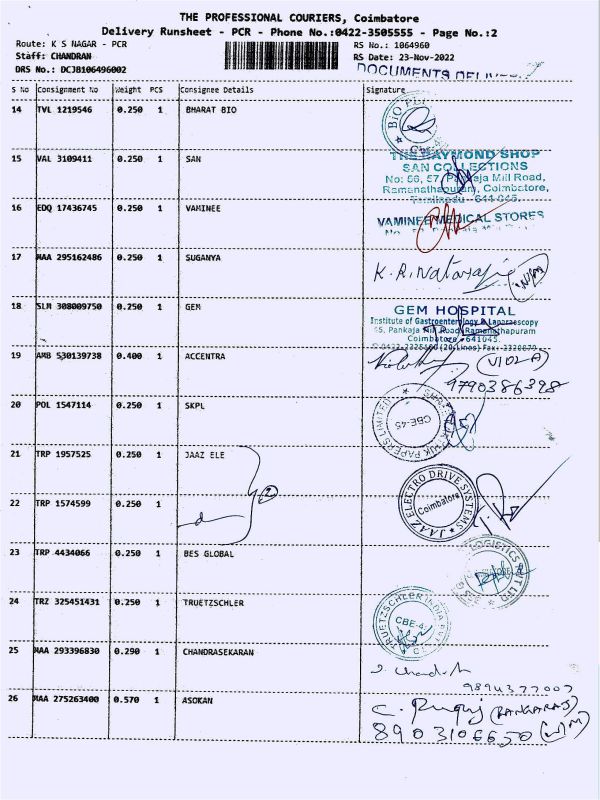 THE PROFESSIONAL COURIERS, Coimbatore
Delivery Runsheet - PCR - Phone No.:0422-3505555 - Page No.:2
Route: K S NAGAR - PCR RS No.: 1064960
Staff: CHANDRAN RS Date: 23-Nov-2022
DRS No.: DCJB106496002 DOCUMENTS
S No Consignment No Weight PCS Consignee Details Signature
14 TVL 1219546 0.250 1 BHARAT BIO
15 VAL 3109411 0.250 1 SAN
THE RAYMOND SHOP
SAN COLLECTIONS
No: 56, 57, Pankaja Mill Road,
Ramanathapuram, Coimbatore,
Tamilnadu - 641 045.
16 EDQ 17436745 0.250 1 VAMINEE
VAMINEE MEDICAL STORES
17 MAA 295162486 0.250 1 SUGANYA
K. R. Natarajan
18 SLM 308009750 0.250 1 GEM
GEM HOSPITAL
Institute of Gastroenterology & Laparoscopy
Pankaja Mill Road, Ramanathapuram
Coimbatore - 641045.
19 AMB 530139738 0.400 1 ACCENTRA
(VIOLA)
9790386398
20 POL 1547114 0.250 1 SKPL
PAPERS LIMITED
CBE-45
21 TRP 1957525 0.250 1 JAAZ ELE
2
JAAZ ELECTRO DRIVE SYSTEMS
Coimbatore
22 TRP 1574599 0.250 1
23 TRP 4434066 0.250 1 BES GLOBAL
LOGISTICS PVT LTD
24 TRZ 325451431 0.250 1 TRUETZSCHLER
TRUETZSCHLER INDIA PVT
CBE-4
25 MAA 293396830 0.290 1 CHANDRASEKARAN
9894377007
26 MAA 275263400 0.570 1 ASOKAN
(RANGARAJ)
8903106650